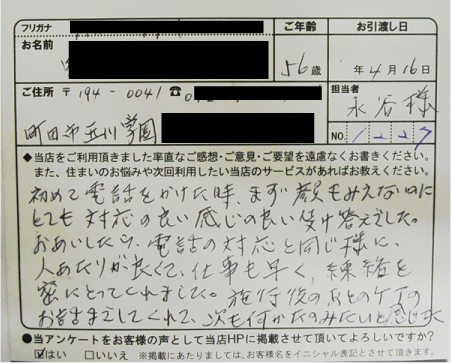 フリガナ
お名前
ご年齢
56歳
お引渡し日
年4月16日
ご住所 〒194-0041 ☎
町田市玉川学園
担当者
永谷様
NO. 1227
◆当店をご利用頂きました率直なご感想・ご意見・ご要望を遠慮なくお書きください。
また、住まいのお悩みや次回利用したい当店のサービスがあればお教えください。
初めて電話をかけた時、まず顔もみえないのに
とても対応の良い感じの良い受け答えでした。
おあいしたら、電話の対応と同じ様に、
人あたりが良くて、仕事も早く、連絡を
密にとってくれました。施行後のあとのケアの
お話までしてくれて、次も何かたのみたいと感じ
◆当アンケートをお客様の声として当店HPに掲載させて頂いてよろしいですか?
☑はい □いいえ ※掲載にあたりましては、お客様名をイニシャル表記とさせて頂きます。